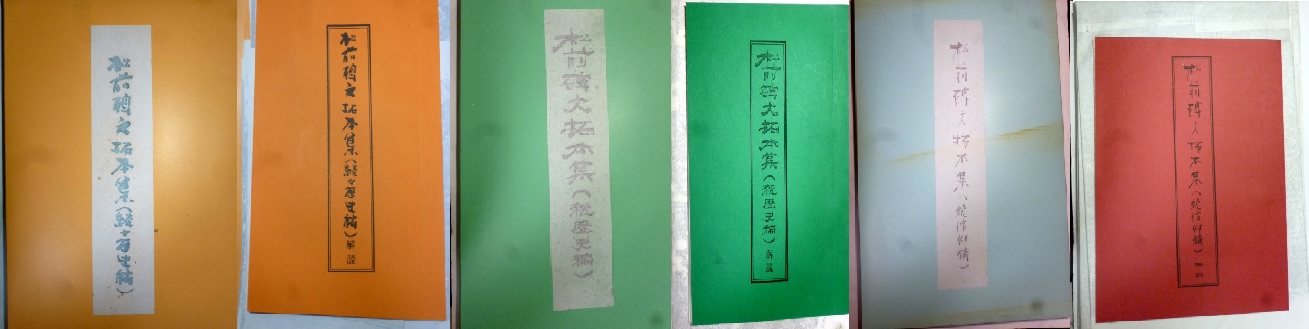 松前碑文拓本集(続々歴史編)
松前碑文拓本集(続々歴史編)解説
松前碑文拓本集(続歴史編)
松前碑文拓本集(続歴史編)解説
松前碑文拓本集(続信仰編)
松前碑文拓本集(続信仰編)解説